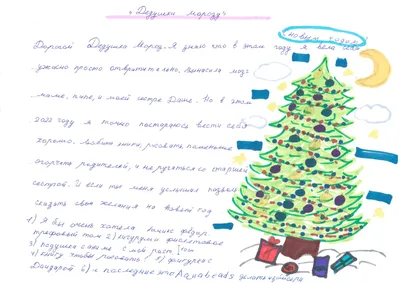 "Дедушки морозу"
новым годом!
Дорогой Дедушка Мороз. Я знаю что в этом году я вела себя
ужасно просто отвратительно, выносила мозг
маме, папе, и моей сестре Даше. Но в этом
2022 году я точно постараюсь вести себя
хорошо. читать книги, рисовать поменьше
огорчать родителей, и не ругаться со старшей
сестрой. И если ты меня услышал позволь
сказать свои желания на Новый год
1) Я бы очень хотела комикс
трофовый том 2) кигуруми фиолетовое
3) подушки с аниме с мой рост
4) книгу чтобы рисовать 5) фигурки
6) и последнее это Aquabeads